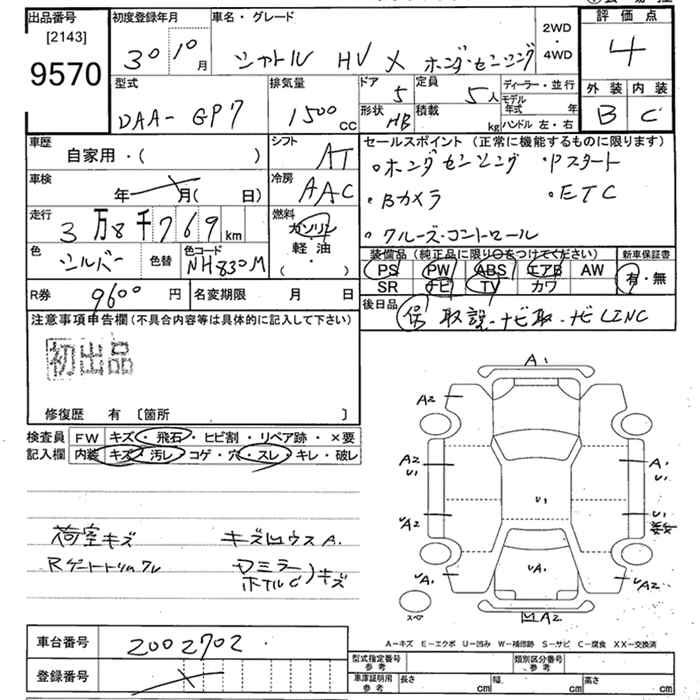 出品番号 初度登録年月 車名・グレード 評価点
[2143]
9570
30 10月 シャトル HV X ホンダ・センシング 2WD・4WD 4
型式 排気量 ドア 5 定員 5人 ディーラー・並行 外装 内装
DAA- GP7 1500 CC 形状 HB 積載 kg モデル年式 年 B C
ハンドル 左・右
車歴 シフト セールスポイント(正常に機能するものに限ります)
自家用・( ) AT ・ホンダセンシング ・Pスタート
車検 冷房 ・Bカメラ ・ETC
年 月( 日) AAC ・クルーズ・コントロール
走行 燃料
3万8千769 km ガソリン
軽・油
( )
色 シルバー 色替 色コード NH830M
装備品(純正品に限り○をつけてください) 新車保証書
PS PW ABS エアB AW 有・無
SR ナビ TV カワ
R券 9600円 名変期限 月 日 後日品
保 取説・ナビ取・ナビLINC
注意事項申告欄(不具合内容等は具体的に記入して下さい)
初出品
修復歴 有 〔箇所 〕
検査員 FW キズ・飛石・ヒビ割・リペア跡・×要
記入欄 内装 キズ・汚レ・コゲ・穴・スレ・キレ・破レ
荷室キズ
キズ凹ウスA.
Rゲートトリムワレ
ミラー
ホイルC
キズ
A1
A2
A2 U1
A1 U1
U1
UA2
U1
UA1
UA1
UA2
スペア
凹A2
A-キズ E-エクボ U-凹み W-補修跡 S-サビ C-腐食 XX-交換済
車台番号 2002702
登録番号
型式指定番号 参考 類別区分番号 参考
車庫証明用 参考 長さ cm 幅 cm 高さ cm